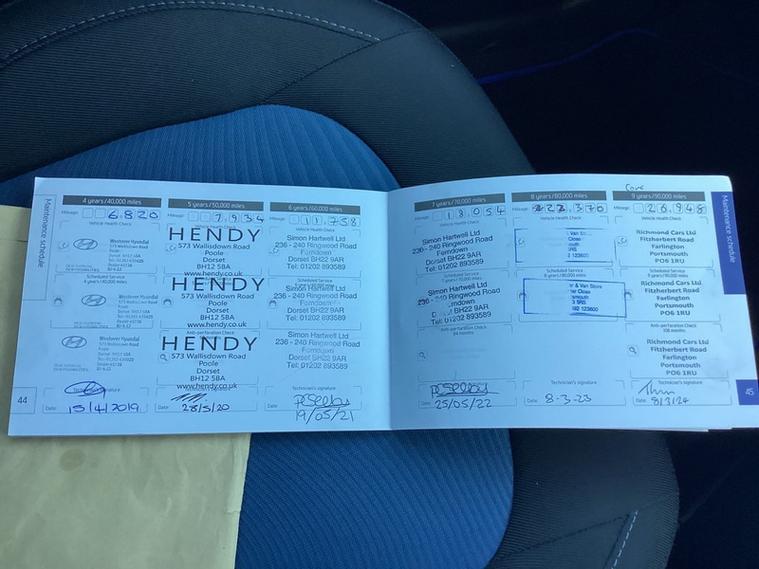 Maintenance schedule
4 years/40,000 miles
Mileage 6820
Vehicle Health Check
Westover Hyundai
Scheduled Service
4 years/40,000 miles
Westover Hyundai
Westover Hyundai
Technician's signature
Date: 15/4/2019
44
5 years/50,000 miles
Mileage 7,934
HENDY
573 Wallisdown Road
Poole
Dorset
BH12 5BA
www.hendy.co.uk
HENDY
573 Wallisdown Road
Poole
Dorset
BH12 5BA
www.hendy.co.uk
Anti-perforation Check
HENDY
573 Wallisdown Road
Poole
Dorset
BH12 5BA
www.hendy.co.uk
Date: 28/5/20
6 years/60,000 miles
Mileage 11,758
Vehicle Health Check
Simon Hartwell Ltd
236 - 240 Ringwood Road
Ferndown
Dorset BH22 9AR
Tel: 01202 893589
Simon Hartwell Ltd
236 - 240 Ringwood Road
Ferndown
Dorset BH22 9AR
Tel: 01202 893589
Simon Hartwell Ltd
236 - 240 Ringwood Road
Ferndown
Dorset BH22 9AR
Tel: 01202 893589
Technician's signature
Date: 19/05/21
7 years/70,000 miles
Mileage 18054
Vehicle Health Check
Simon Hartwell Ltd
236 - 240 Ringwood Road
Ferndown
Dorset BH22 9AR
Tel: 01202 893589
Scheduled Service
Simon Hartwell Ltd
236 - 240 Ringwood Road
Ferndown
Dorset BH22 9AR
Tel: 01202 893589
Anti-perforation Check
84 months
Technician's signature
Date: 25/05/22
8 years/80,000 miles
Mileage 22,370
Vehicle Health Check
Van Store
Close
123600
Scheduled Service
8 years/80,000 miles
& Van Store
Close
123600
Technician's signature
Date: 8-3-23
9 years/90,000 miles
Mileage 26,948
Vehicle Health Check
Richmond Cars Ltd
Fitzherbert Road
Farlington
Portsmouth
PO6 1RU
Scheduled Service
9 years/90,000 miles
Richmond Cars Ltd
Fitzherbert Road
Farlington
Portsmouth
PO6 1RU
Anti-perforation Check
108 months
Richmond Cars Ltd
Fitzherbert Road
Farlington
Portsmouth
PO6 1RU
Technician's signature
Date: 8/3/24
Maintenance schedule
45